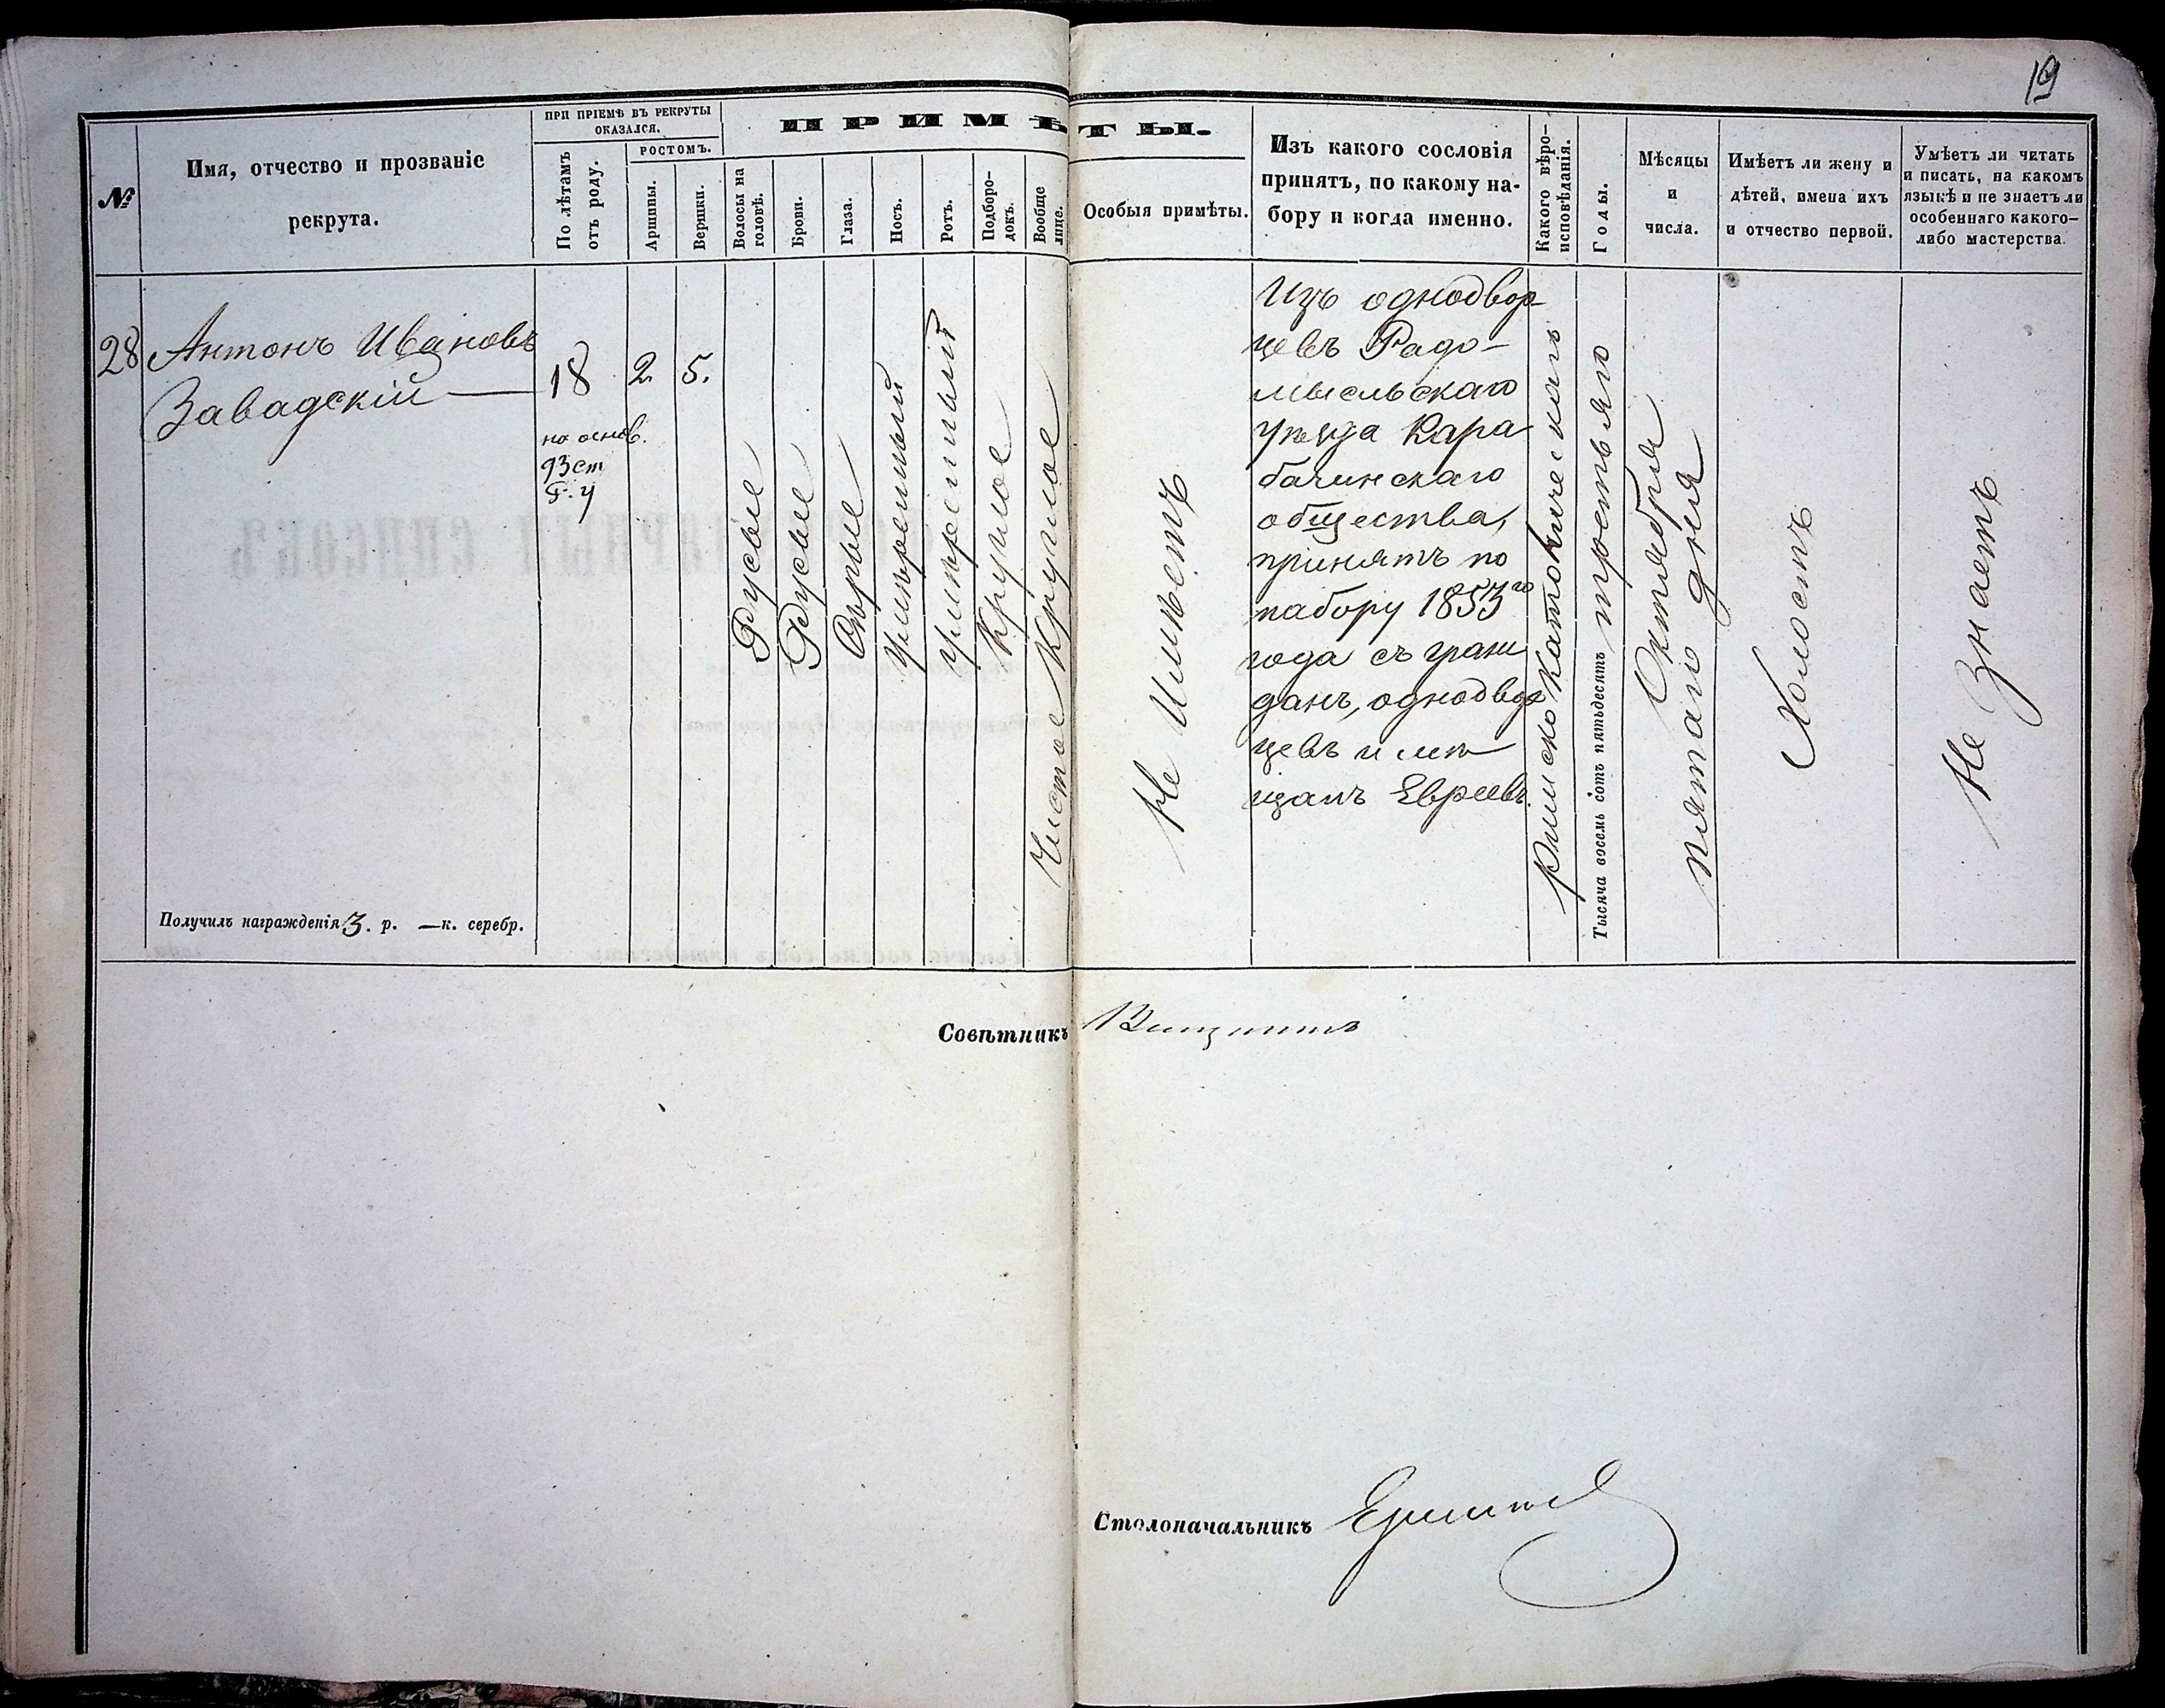 19
№
Имя, отчество и прозваніе
рекрута.
ПРИ ПРІЕМѢ ВЪ РЕКРУТЫ
ОКАЗАЛСЯ.
По лѣтамъ
отъ роду.
РОСТОМЪ.
Аршины.
Вершки.
ПРИМѢТЫ.
Волосы на
головѣ.
Брови.
Глаза.
Носъ.
Ротъ.
Подборо-
докъ.
Вообще
лице.
Особыя примѣты.
Изъ какого сословія
принятъ, по какому на-
бору и когда именно.
Какого вѣро-
исповѣданія.
Годы.
Мѣсяцы
и
числа.
Имѣетъ ли жену и
дѣтей, имена ихъ
и отчество первой.
Умѣетъ ли читать
и писать, на какомъ
языкѣ и не знаетъ ли
особеннаго какого-
либо мастерства.
28
Антонъ Ивановъ
Завадскій
18
на основ.
93 ст
2.
5.
Русые
Русые
Сѣрые
умѣренный
умѣренный
Круглое
Чистое Круглое
Не Имѣетъ
Изъ однодвор-
цевъ Радо-
мысльскаго
уѣзда Кара
бачинскаго
общества,
принятъ по
набору 1853го
года съ граж
данъ, однодвор
цевъ и мѣ
щанъ Евреевъ.
Римско Католическаго
Тысяча восемь сотъ пятьдесятъ третьяго
Октября
пятаго дня
Холостъ
Не Знаетъ
Получилъ награжденія 3. р. — к. серебр.
Совѣтникъ
Столоначальникъ